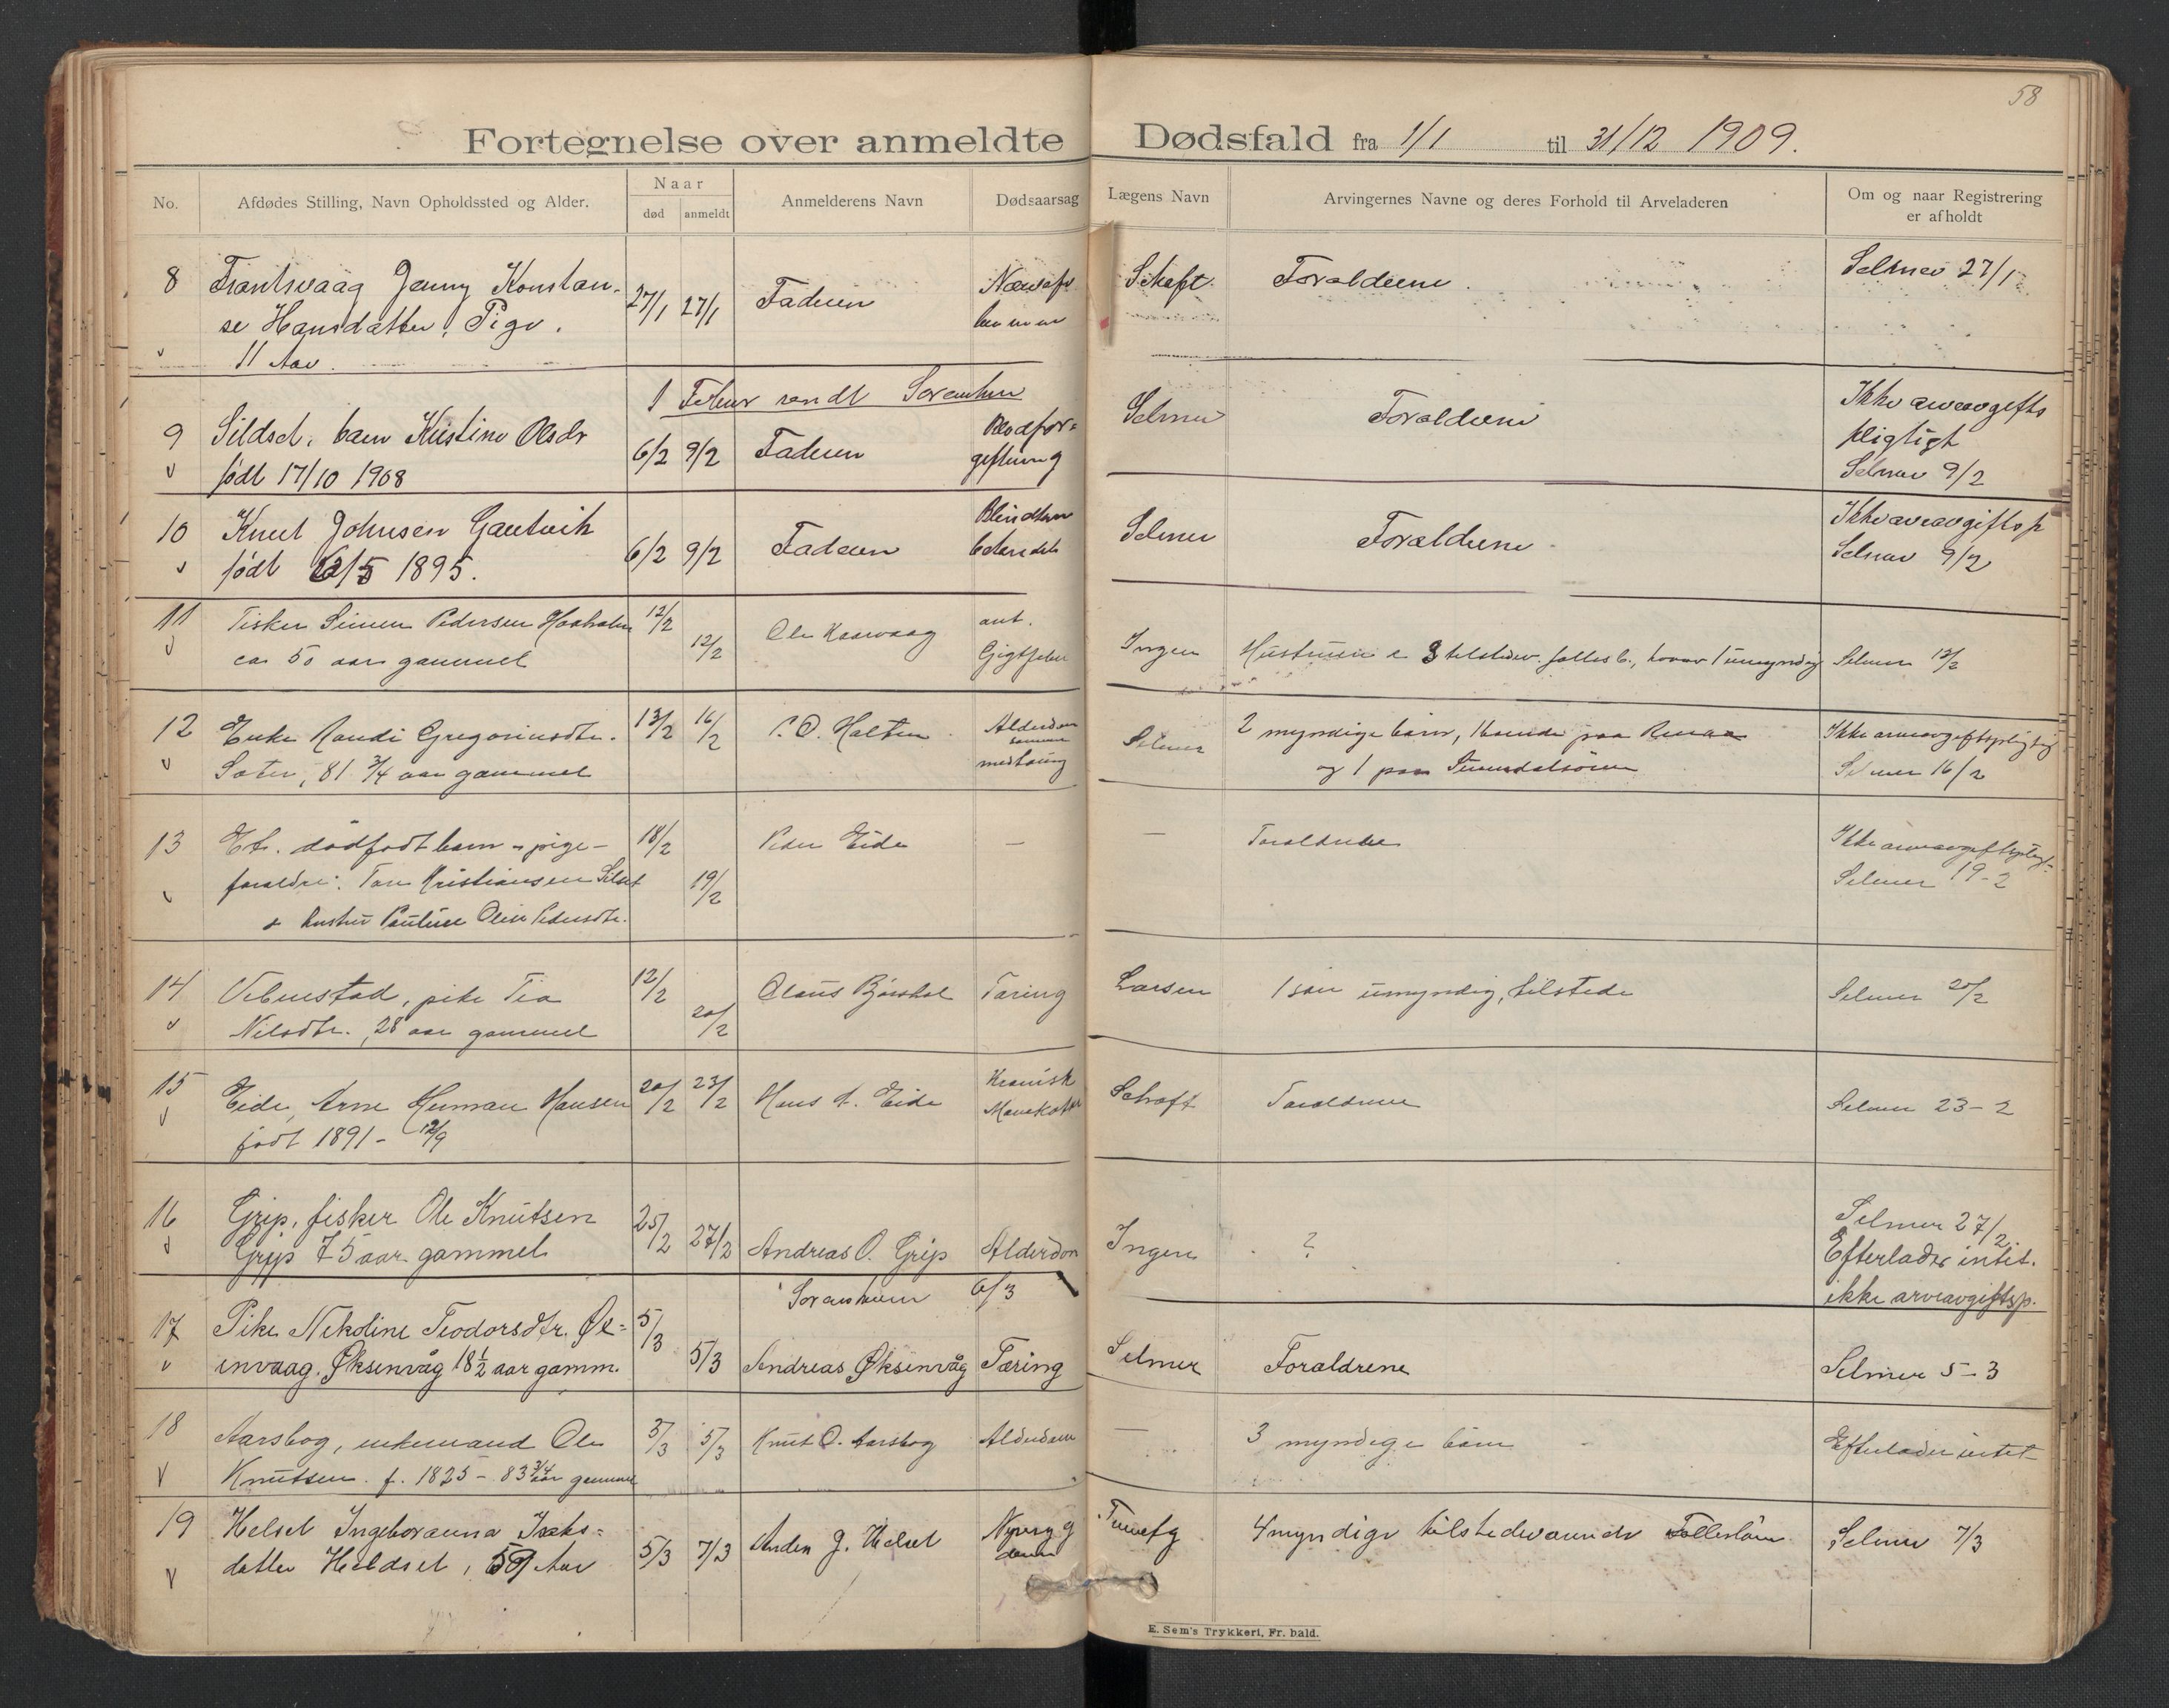 58
Fortegnelse over anmeldte Dødsfald fra 1/1 til 31/12 1909.
No.
Afdødes Stilling, Navn Opholdssted og Alder.
Naar
død
anmeldt
Anmelderens Navn
Dødsaarsag
Lægens Navn
Arvingernes Navne og deres Forhold til Arveladeren
Om og naar Registrering
er afholdt
8 Frantsvaag Jenny Konstan-
se Hansdatter, Pige.
11 Aar.
27/1 27/1 Faderen
Forældrene.
Selmer 27/1
1 Februar rundt Sorenskr
9 Sildset, barn Kristine Olsdr
født 17/10 1908
6/2 9/2 Faderen
Blodfor-
giftning
Selmer
Forældrene
Ikke arveavgifts
pligtigt
Selmer 9/2
10 Knut Johnsen Gautvik
født 6/5 1895.
6/2 9/2 Faderen
Blindtarm
betændels
Selmer
Forældrene
Ikke arveavgiftsp
Selmer 9/2
11 Fisker Simen Pedersen Haaholm
ca 50 aar gammel
12/2
12/2
Ole Kaarvaag
ant.
Gigtfeber
Ingen
Hustruen & 3 tilstedev. fælles b., hvorav 1 umyndig
Selmer 12/2
12 Enke Randi Gregoriusdtr.
Sæter, 81 3/4 aar gammel
13/2 16/2
P. O. Holten
Alderdom
Selmer
2 myndige børn, 1 boende paa
og 1 paa Sunndalsøren
Ikke arveavgiftspligtig
Selmer 16/2
13 Et dødfødt barn - pige -
forældre: Tore Kristiansen Silset
& hustru Pauline Oline Pedersdtr.
18/2
19/2
Peder Eide
—
—
Forældrene
Ikke arveavgiftspligt.
Selmer 19-2
14 Vebenstad, pike Tea
Nilsdtr., 28 aar gammel
12/2
20/2
Olaus
Tæring
Larsen
1 søn umyndig, tilstede
Selmer 20/2
15 Eide, Arne Herman Hansen
født 1891 - 12/9
20/2 23/2
Hans A. Eide
Kronisk
Mavekatar
Schaft
Forældrene
Selmer 23-2
16 Grip, fisker Ole Knutsen
Grip 75 aar gammel
25/2 27/2
Andreas O. Grip
Alderdom
Ingen
?
Selmer 27/2.
Efterlader intet.
ikke arveavgiftsp.
Sorenskriveren 6/3
17 Pike Nekoline Teodorsdtr. Øks-
envaag. Øksenvåg 18 1/2 aar gamm.
5/3
5/3
Andreas Øksenvåg
Tæring
Selmer
Forældrene
Selmer 5-3
18 Aarsbog, enkemand Ole
Knutsen. f. 1825 - 83 3/4 aar gammel
3/3 5/3
Knut O. Aarsbog
Alderdom
—
3 myndige børn
Efterlader intet
19 Helset Ingeboranna Isaks-
datter Heldset, 59 Aar
5/3 7/3
Anders J. Helset
4 myndige tilstedeværende Fællesbørn
Selmer 7/3
E. Sem's Trykkeri, Fr. hald.